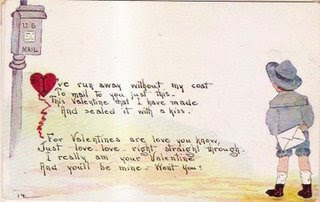 U S
MAIL
I've run away without my coat
To mail to you just this -
This Valentine that I have made
And sealed it with a kiss.
For Valentines are love you know,
Just love - love - right straight through.
I really am your Valentine
And you'll be mine - Won't You?